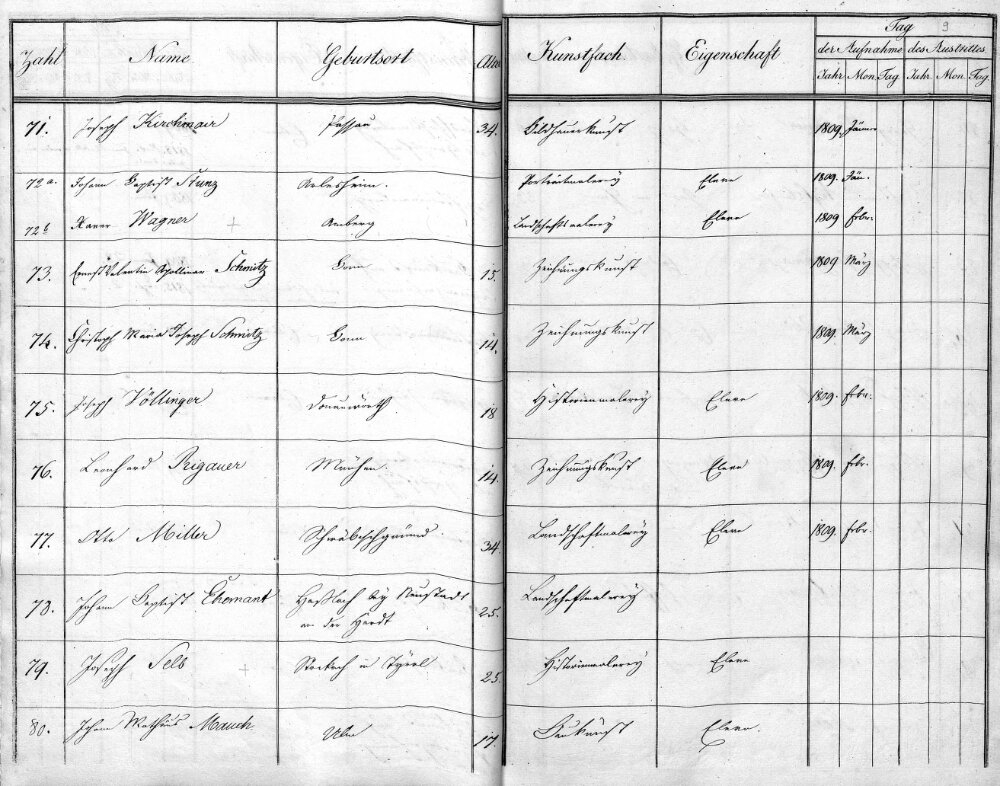 Zahl Name Geburtsort Alter Kunstfach Eigenschaft Tag 9
der Aufnahme des Austrittes
Jahr Mon. Tag Jahr. Mon. Tag.
71. Joseph Kirchmair Passau 34. Bildhauerkunst 1809. Jänner
72a. Johann Baptist Stunz Arlesheim. Portraitmalerey Eleve 1809. Jän.
72b Xaver Wagner + Amberg Landschaftsmalerey Eleve 1809 febr.
73. Ernst Valentin Apollinar Schmitz Bonn 15. Zeichnungskunst 1809 März
74. Christoph Maria Joseph Schmitz Bonn 14. Zeichnungskunst 1809. März
75. Joseph Völlinger Donauwörth. 18 Historienmalerey Eleve 1809. febr.
76. Leonhard Rigauer München 14. Zeichnungskunst Eleve 1809. febr.
77. Otto Miller Schwäbischgmünd 34 Landschaftmalerey Eleve 1809. febr.
78. Johann Baptist Ehemant Haßloch bey Neustadt
an der Hardt 25. Landschaftmalerey
79. Joseph Selb + Stockach in Tyrol 25 Historienmalerey Eleve
80. Johann Mathäus Mauch Ulm 17. Baukunst Eleve.